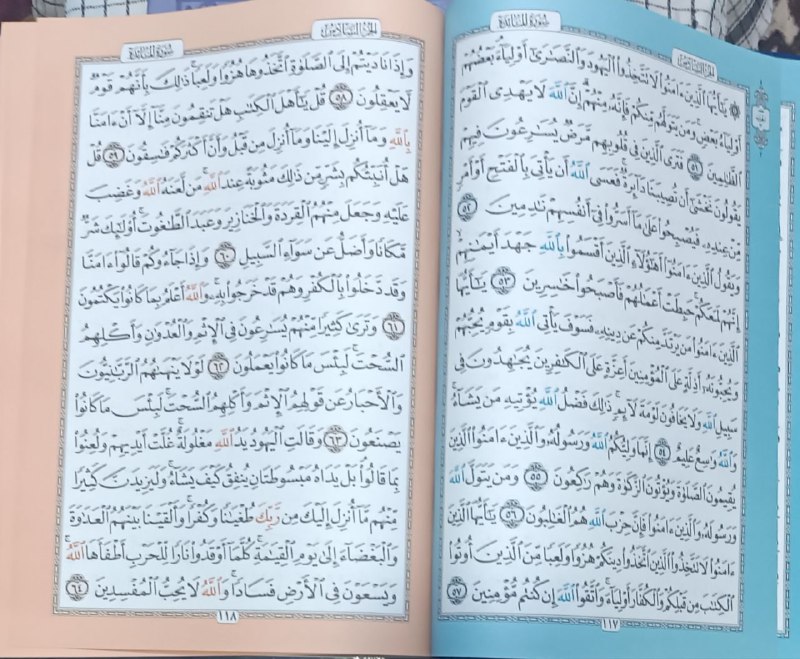 سُورَةُ المَائدة
الجزء السادس
۞ يَٰٓأَيُّهَا ٱلَّذِينَ ءَامَنُوا۟ لَا تَتَّخِذُوا۟ ٱلْيَهُودَ وَٱلنَّصَٰرَىٰٓ أَوْلِيَآءَ بَعْضُهُمْ
أَوْلِيَآءُ بَعْضٍ وَمَن يَتَوَلَّهُم مِّنكُمْ فَإِنَّهُۥ مِنْهُمْ إِنَّ ٱللَّهَ لَا يَهْدِى ٱلْقَوْمَ
ٱلظَّٰلِمِينَ ٥١ فَتَرَى ٱلَّذِينَ فِى قُلُوبِهِم مَّرَضٌ يُسَٰرِعُونَ فِيهِمْ
يَقُولُونَ نَخْشَىٰٓ أَن تُصِيبَنَا دَآئِرَةٌ فَعَسَى ٱللَّهُ أَن يَأْتِىَ بِٱلْفَتْحِ أَوْ أَمْرٍ
مِّنْ عِندِهِۦ فَيُصْبِحُوا۟ عَلَىٰ مَآ أَسَرُّوا۟ فِىٓ أَنفُسِهِمْ نَٰدِمِينَ ٥٢
وَيَقُولُ ٱلَّذِينَ ءَامَنُوٓا۟ أَهَٰٓؤُلَآءِ ٱلَّذِينَ أَقْسَمُوا۟ بِٱللَّهِ جَهْدَ أَيْمَٰنِهِمْ
إِنَّهُمْ لَمَعَكُمْ حَبِطَتْ أَعْمَٰلُهُمْ فَأَصْبَحُوا۟ خَٰسِرِينَ ٥٣ يَٰٓأَيُّهَا
ٱلَّذِينَ ءَامَنُوا۟ مَن يَرْتَدَّ مِنكُمْ عَن دِينِهِۦ فَسَوْفَ يَأْتِى ٱللَّهُ بِقَوْمٍ يُحِبُّهُمْ
وَيُحِبُّونَهُۥٓ أَذِلَّةٍ عَلَى ٱلْمُؤْمِنِينَ أَعِزَّةٍ عَلَى ٱلْكَٰفِرِينَ يُجَٰهِدُونَ فِى
سَبِيلِ ٱللَّهِ وَلَا يَخَافُونَ لَوْمَةَ لَآئِمٍ ذَٰلِكَ فَضْلُ ٱللَّهِ يُؤْتِيهِ مَن يَشَآءُ
وَٱللَّهُ وَٰسِعٌ عَلِيمٌ ٥٤ إِنَّمَا وَلِيُّكُمُ ٱللَّهُ وَرَسُولُهُۥ وَٱلَّذِينَ ءَامَنُوا۟ ٱلَّذِينَ
يُقِيمُونَ ٱلصَّلَوٰةَ وَيُؤْتُونَ ٱلزَّكَوٰةَ وَهُمْ رَٰكِعُونَ ٥٥ وَمَن يَتَوَلَّ ٱللَّهَ
وَرَسُولَهُۥ وَٱلَّذِينَ ءَامَنُوا۟ فَإِنَّ حِزْبَ ٱللَّهِ هُمُ ٱلْغَٰلِبُونَ ٥٦ يَٰٓأَيُّهَا ٱلَّذِينَ
ءَامَنُوا۟ لَا تَتَّخِذُوا۟ ٱلَّذِينَ ٱتَّخَذُوا۟ دِينَكُمْ هُزُوًا وَلَعِبًا مِّنَ ٱلَّذِينَ أُوتُوا۟
ٱلْكِتَٰبَ مِن قَبْلِكُمْ وَٱلْكُفَّارَ أَوْلِيَآءَ وَٱتَّقُوا۟ ٱللَّهَ إِن كُنتُم مُّؤْمِنِينَ ٥٧
١١٧
الجزء السادس
سُورَةُ المَائدة
وَإِذَا نَادَيْتُمْ إِلَى ٱلصَّلَوٰةِ ٱتَّخَذُوهَا هُزُوًا وَلَعِبًا ذَٰلِكَ بِأَنَّهُمْ قَوْمٌ
لَّا يَعْقِلُونَ ٥٨ قُلْ يَٰٓأَهْلَ ٱلْكِتَٰبِ هَلْ تَنقِمُونَ مِنَّآ إِلَّآ أَنْ ءَامَنَّا
بِٱللَّهِ وَمَآ أُنزِلَ إِلَيْنَا وَمَآ أُنزِلَ مِن قَبْلُ وَأَنَّ أَكْثَرَكُمْ فَٰسِقُونَ ٥٩ قُلْ
هَلْ أُنَبِّئُكُم بِشَرٍّ مِّن ذَٰلِكَ مَثُوبَةً عِندَ ٱللَّهِ مَن لَّعَنَهُ ٱللَّهُ وَغَضِبَ
عَلَيْهِ وَجَعَلَ مِنْهُمُ ٱلْقِرَدَةَ وَٱلْخَنَازِيرَ وَعَبَدَ ٱلطَّٰغُوتَ أُو۟لَٰٓئِكَ شَرٌّ
مَّكَانًا وَأَضَلُّ عَن سَوَآءِ ٱلسَّبِيلِ ٦٠ وَإِذَا جَآءُوكُمْ قَالُوٓا۟ ءَامَنَّا
وَقَد دَّخَلُوا۟ بِٱلْكُفْرِ وَهُمْ قَدْ خَرَجُوا۟ بِهِۦ وَٱللَّهُ أَعْلَمُ بِمَا كَانُوا۟ يَكْتُمُونَ
٦١ وَتَرَىٰ كَثِيرًا مِّنْهُمْ يُسَٰرِعُونَ فِى ٱلْإِثْمِ وَٱلْعُدْوَٰنِ وَأَكْلِهِمُ
ٱلسُّحْتَ لَبِئْسَ مَا كَانُوا۟ يَعْمَلُونَ ٦٢ لَوْلَا يَنْهَىٰهُمُ ٱلرَّبَّٰنِيُّونَ
وَٱلْأَحْبَارُ عَن قَوْلِهِمُ ٱلْإِثْمَ وَأَكْلِهِمُ ٱلسُّحْتَ لَبِئْسَ مَا كَانُوا۟
يَصْنَعُونَ ٦٣ وَقَالَتِ ٱلْيَهُودُ يَدُ ٱللَّهِ مَغْلُولَةٌ غُلَّتْ أَيْدِيهِمْ وَلُعِنُوا۟
بِمَا قَالُوا۟ بَلْ يَدَاهُ مَبْسُوطَتَانِ يُنفِقُ كَيْفَ يَشَآءُ وَلَيَزِيدَنَّ كَثِيرًا
مِّنْهُم مَّآ أُنزِلَ إِلَيْكَ مِن رَّبِّكَ طُغْيَٰنًا وَكُفْرًا وَأَلْقَيْنَا بَيْنَهُمُ ٱلْعَدَٰوَةَ
وَٱلْبَغْضَآءَ إِلَىٰ يَوْمِ ٱلْقِيَٰمَةِ كُلَّمَآ أَوْقَدُوا۟ نَارًا لِّلْحَرْبِ أَطْفَأَهَا ٱللَّهُ
وَيَسْعَوْنَ فِى ٱلْأَرْضِ فَسَادًا وَٱللَّهُ لَا يُحِبُّ ٱلْمُفْسِدِينَ ٦٤
١١٨